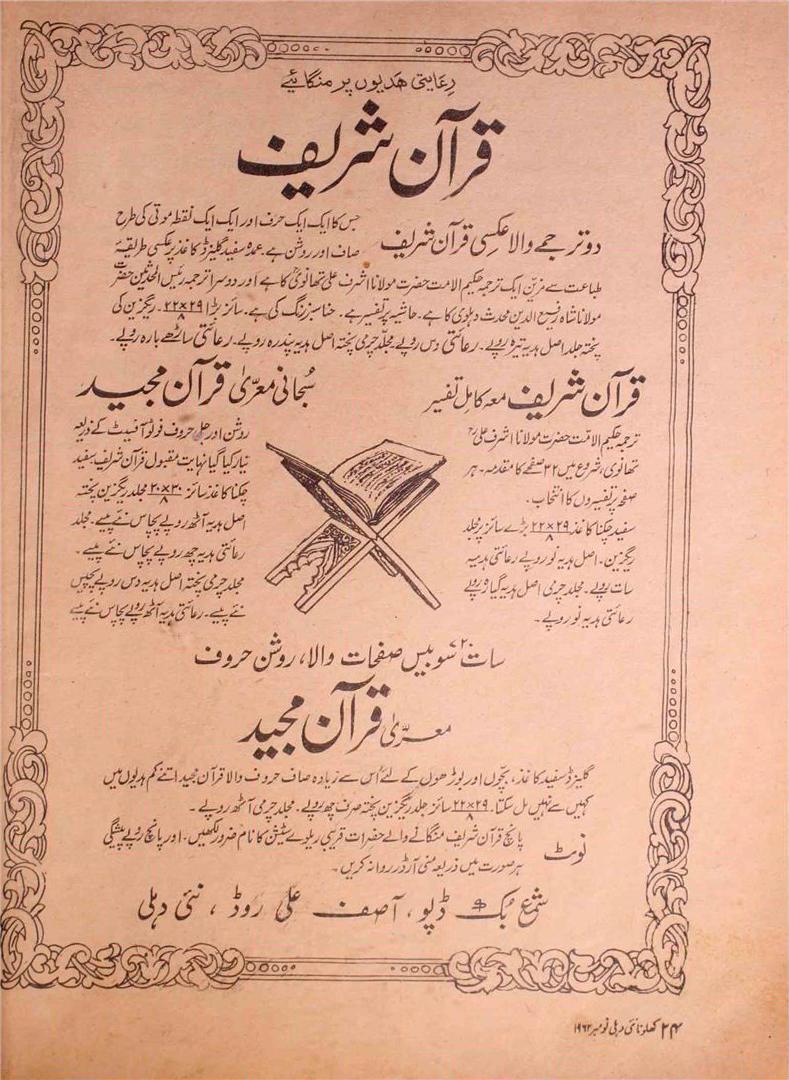 رعایتی ھدیوں پر منگائیے
قرآن شریف
دو ترجمے والا عکسی قرآن شریف
جس کا ایک ایک حرف اور ایک ایک نقطہ موتی کی طرح
صاف اور روشن ہے۔ عمدہ سفید گلیزڈ کاغذ پر عکسی طریقۂ
طباعت سے مزین ایک ترجمہ حکیم الامت حضرت مولانا اشرف علی تھانویؒ کا ہے اور دوسرا ترجمہ رئیس المحدثین حضرت
مولانا شاہ رفیع الدین محدث دہلوی کا ہے۔ حاشیہ پر تفسیر ہے۔ حنا سبز رنگ کی ہے۔ سائز بڑا ۲۲×۲۹/۸۔ ریگزین کی
پختہ جلد اصل ہدیہ تیرہ روپے۔ رعائتی دس روپے مجلد چرمی پختہ اصل ہدیہ پندرہ روپے۔ رعائتی ساڑھے بارہ روپے۔
قرآن شریف معہ کامل تفسیر
ترجمہ حکیم الامت حضرت مولانا اشرف علیؒ
تھانوی، شروع میں ۳۲ صفحے کا مقدمہ۔ ہر
صفحہ پر تفسیروں کا انتخاب۔
سفید چکنا کاغذ ۲۲×۲۹/۸ بڑے سائز پر مجلد
ریگزین۔ اصل ہدیہ نو روپے رعائتی ہدیہ
سات روپے۔ مجلد چرمی اصل ہدیہ گیارہ روپے
رعائتی ہدیہ نو روپے۔
سبحانی معریٰ قرآن مجید
روشن اور جلی حروف فوٹو آفیٹ کے ذریعہ
تیار کیا گیا نہایت مقبول قرآن شریف سفید
چکنا کاغذ سائز ۲۰×۳۰/۸ مجلد ریگزین پختہ
اصل ہدیہ آٹھ روپے پچاس نئے پیسے۔ مجلد
رعائتی ہدیہ چھ روپے پچاس نئے پیسے۔
مجلد چرمی پختہ اصل ہدیہ دس روپے پچیس
نئے پیسے۔ رعائتی ہدیہ آٹھ روپے پچاس نئے پیسے
سات سو بیس ۷۲۰ صفحات والا، روشن حروف
معریٰ قرآن مجید
گلیزڈ سفید کاغذ، بچوں اور بوڑھوں کے لئے اُس سے زیادہ صاف حروف والا قرآن مجید اتنے کم ہدیوں میں
کہیں سے نہیں مل سکتا۔ ۲۲×۲۹/۸ سائز جلد ریگزین پختہ صرف چھ روپے۔ مجلد چرمی آٹھ روپے۔
نوٹ پانچ قرآن شریف منگانے والے حضرات قریبی ریلوے سٹیشن کا نام ضرور لکھیں۔ اور پانچ روپے پیشگی
ہر صورت میں ذریعہ منی آرڈر روانہ کریں۔
شمع بک ڈپو، آصف علی روڈ، نئی دہلی
۲۴ کھلونا نئی دہلی نومبر ۱۹۶۲ء